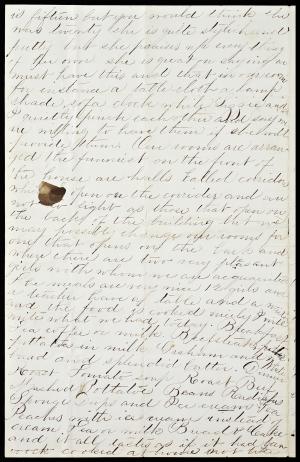 is fifteen but you would think she
was twenty she is quite stylish and
pretty but she
if she ever she is great on saying we
must have this and that in our room
for instance a table cloth a lamp
shade sofa clock while Susie and
I quietly punch each other and say we
are willing to have them if she will
provide them Our rooms are arran-
ged the funniest on the front of
the house are halls called corridors
which open on the corridor and are
not light as those that open on
the back of the building but we
may possibly change our rooms for
one that opens on the back and
where there are two very pleasant
girls with whom we are acquainted
The meals are very nice 12 girls and
a teacher have a table and a
and the food is cooked nicely I will
write what we had today. Breakfast
Tea coffee milk Beefsteak
potatoes in milk Graham and white
bread and splendid butter. Dinner
Roast Tomato soup Roast Beef
Mashed Potatoe Beans Radishes
Sponge Cups and Ice cream Tea
Peaches with ice cream instead of
cream. Tea or milk Bread &
and it all tastes as if it had
been cooked at home not like